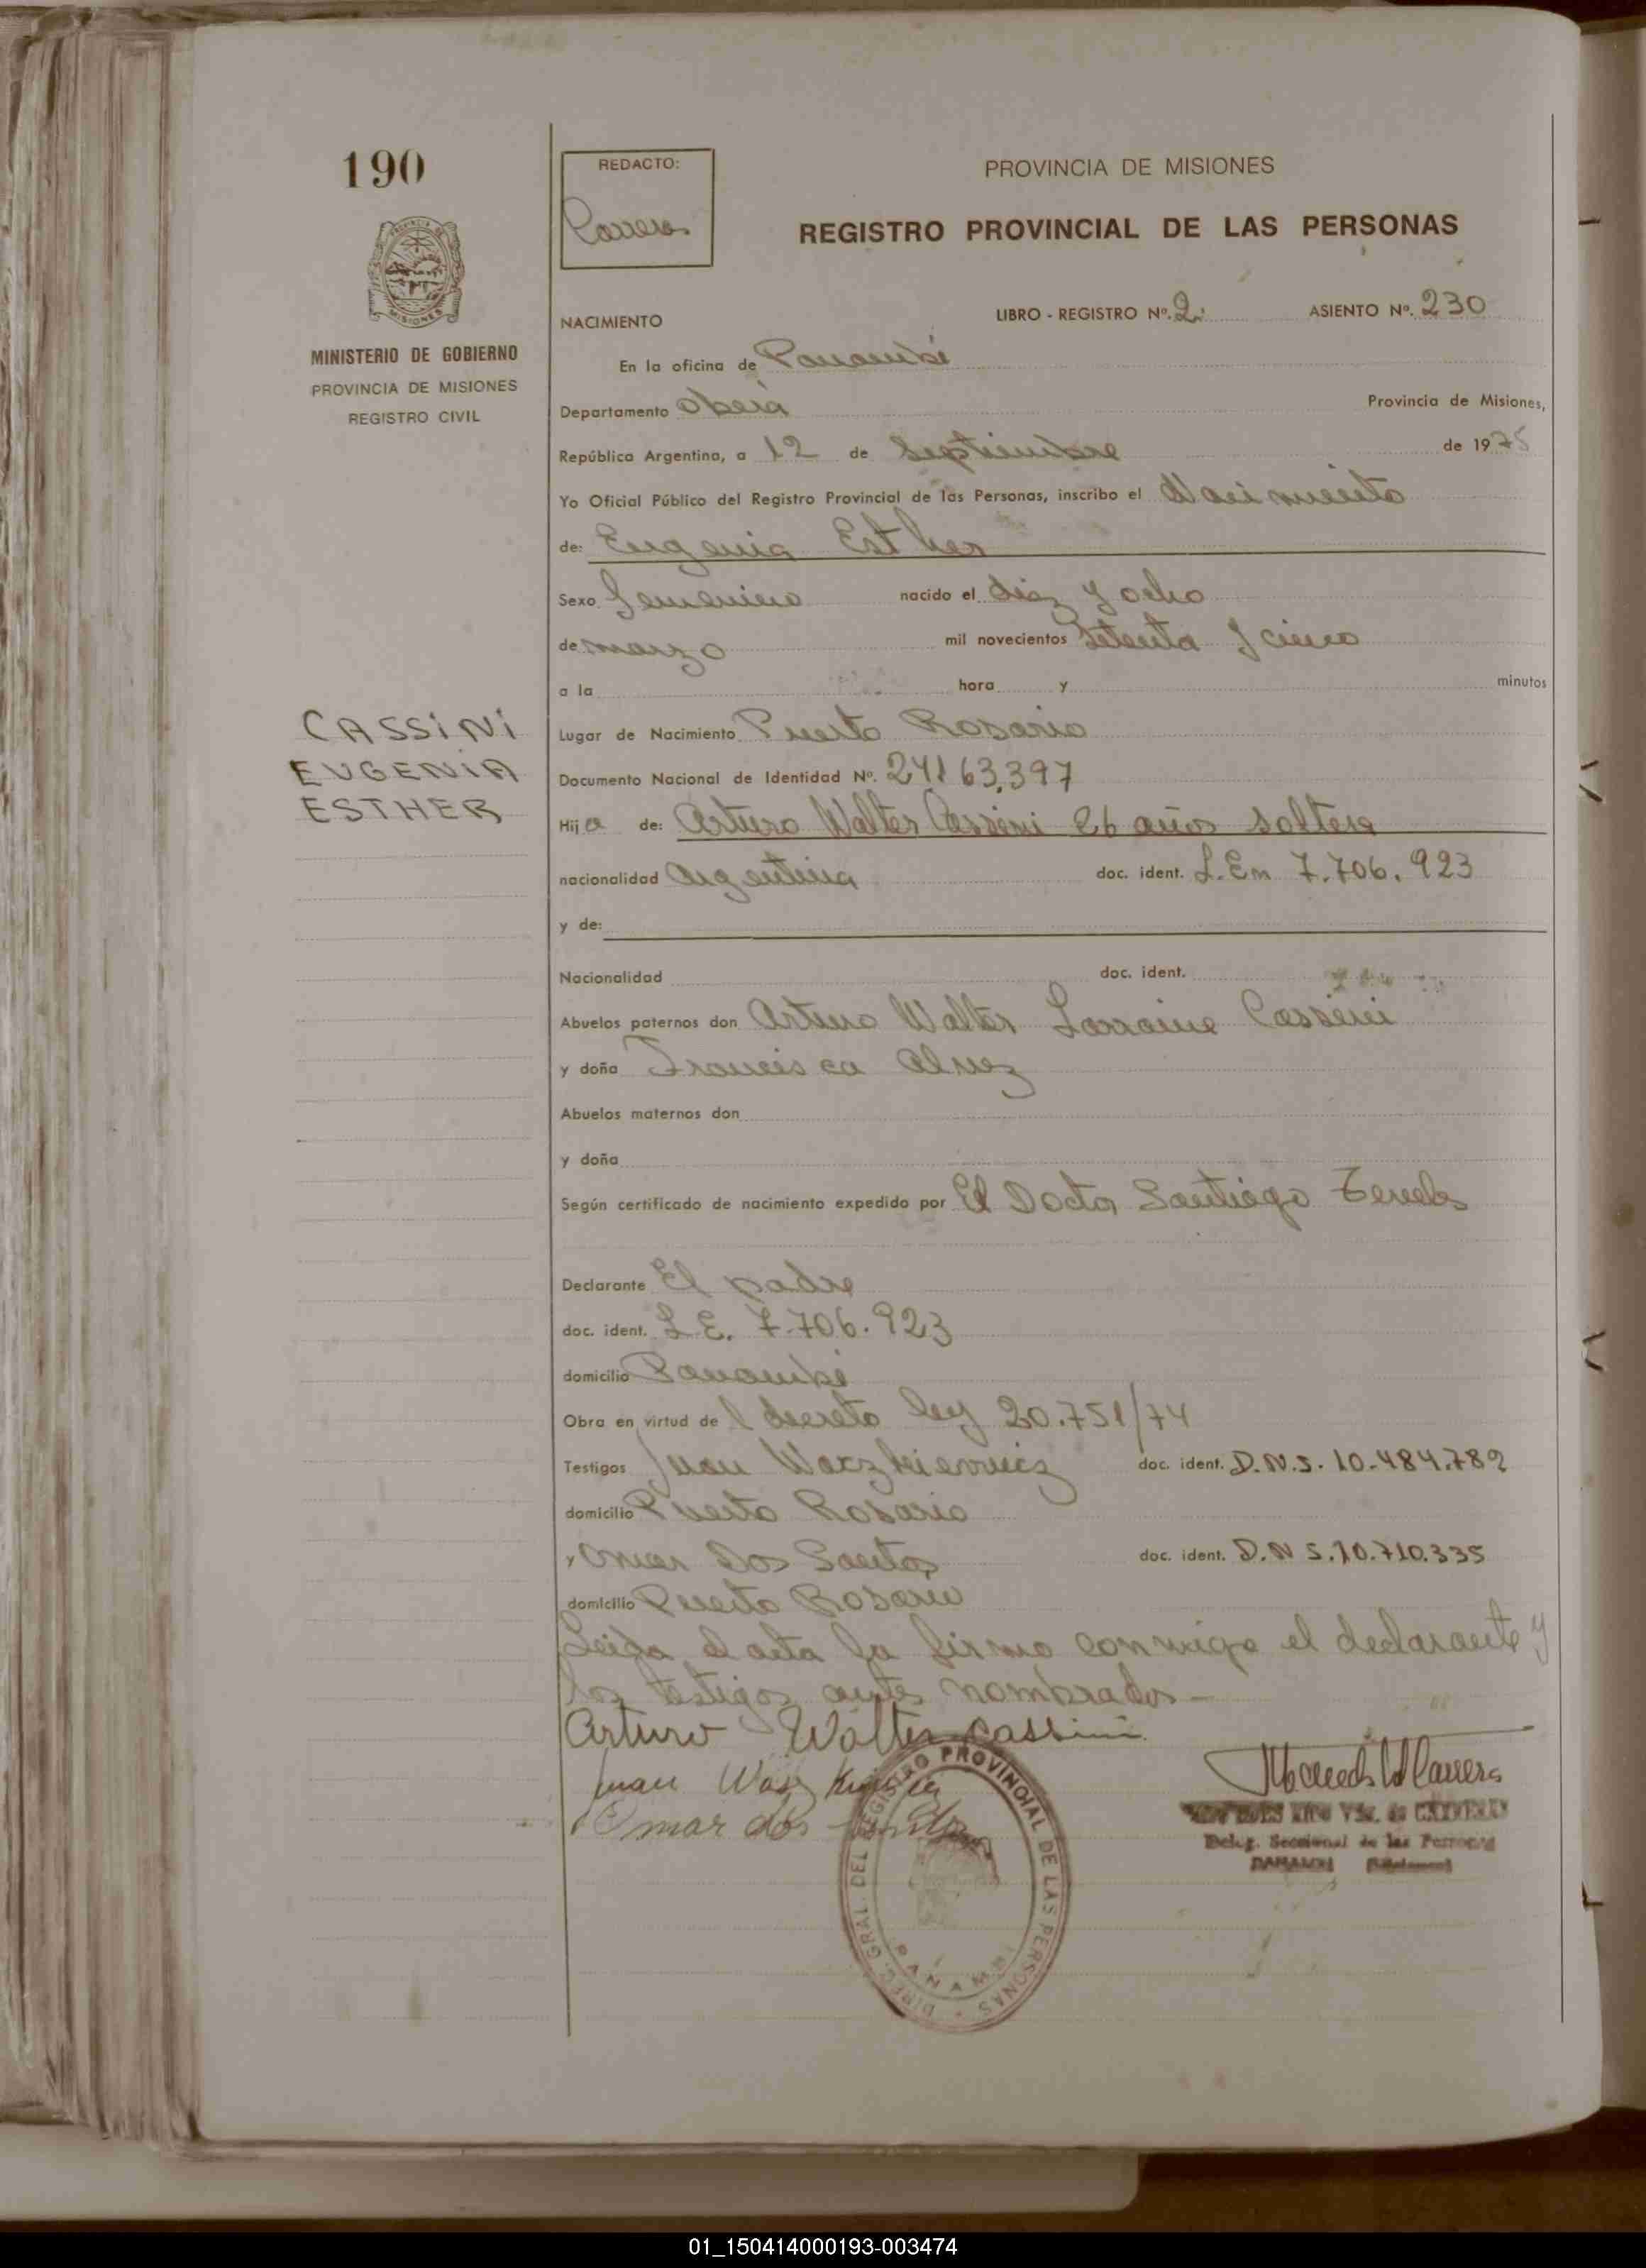 190
REDACTO:
Carrera
PROVINCIA DE MISIONES
REGISTRO PROVINCIAL DE LAS PERSONAS
MINISTERIO DE GOBIERNO
PROVINCIA DE MISIONES
REGISTRO CIVIL
NACIMIENTO LIBRO - REGISTRO Nº. 2 ASIENTO Nº. 230
En la oficina de Panambí
Departamento Oberá Provincia de Misiones,
República Argentina, a 12 de Septiembre de 1975
Yo Oficial Público del Registro Provincial de las Personas, inscribo el Nacimiento
de: Eugenia Esther
Sexo femenino nacido el diez y ocho
de marzo mil novecientos setenta y cinco
a la hora y minutos
CASSINI
EUGENIA
ESTHER
Lugar de Nacimiento Puerto Rosario
Documento Nacional de Identidad Nº. 24163,397
Hija de: Arturo Walter Cassini 26 años soltero
nacionalidad Argentina doc. ident. L.Em 7.706.923
y de:
Nacionalidad doc. ident.
Abuelos paternos don Arturo Walter Lorraine Cassini
y doña Francisca
Abuelos maternos don
y doña
Según certificado de nacimiento expedido por El Doctor Santiago
Declarante El padre
doc. ident. L.E. 7.706.923
domicilio Panambí
Obra en virtud del decreto ley 20.751/74
Testigos Juan doc. ident. D.N.S. 10.484.782
domicilio Puerto Rosario
y Omar Dos Santos doc. ident. D.N S.10.710.335
domicilio Puerto Rosario
Leida el acta la firma conmigo el declarante y
los testigos antes nombrados -
Arturo Walter Cassini
Juan
Omar dos
DIREC. GRAL. DEL REGISTRO PROVINCIAL DE LAS PERSONAS
PANAMBI
Deleg. Seccional de las Personas
01_150414000193-003474